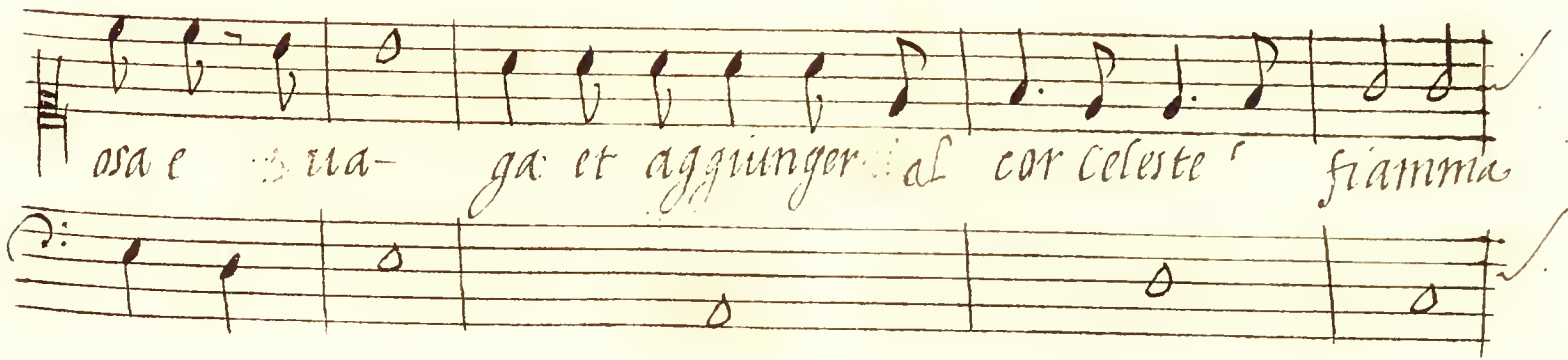 osa e ua- ga et aggiunger al cor celeste fiamma